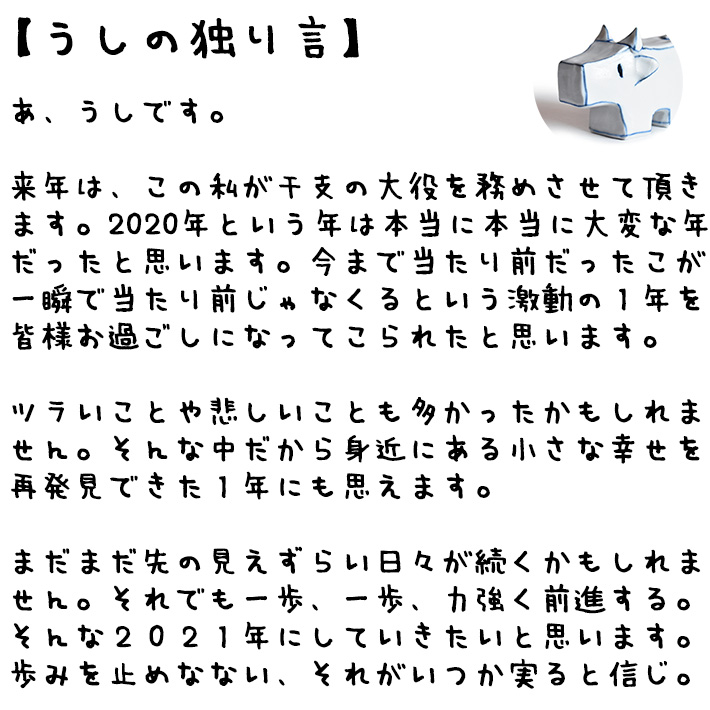 【うしの独り言】
あ、うしです。
来年は、この私が干支の大役を務めさせて頂き
ます。2020年という年は本当に本当に大変な年
だったと思います。今まで当たり前だったこが
一瞬で当たり前じゃなくるという激動の１年を
皆様お過ごしになってこられたと思います。
ツラいことや悲しいことも多かったかもしれま
せん。そんな中だから身近にある小さな幸せを
再発見できた１年にも思えます。
まだまだ先の見えずらい日々が続くかもしれま
せん。それでも一歩、一歩、力強く前進する。
そんな２０２１年にしていきたいと思います。
歩みを止めなない、それがいつか実ると信じ。